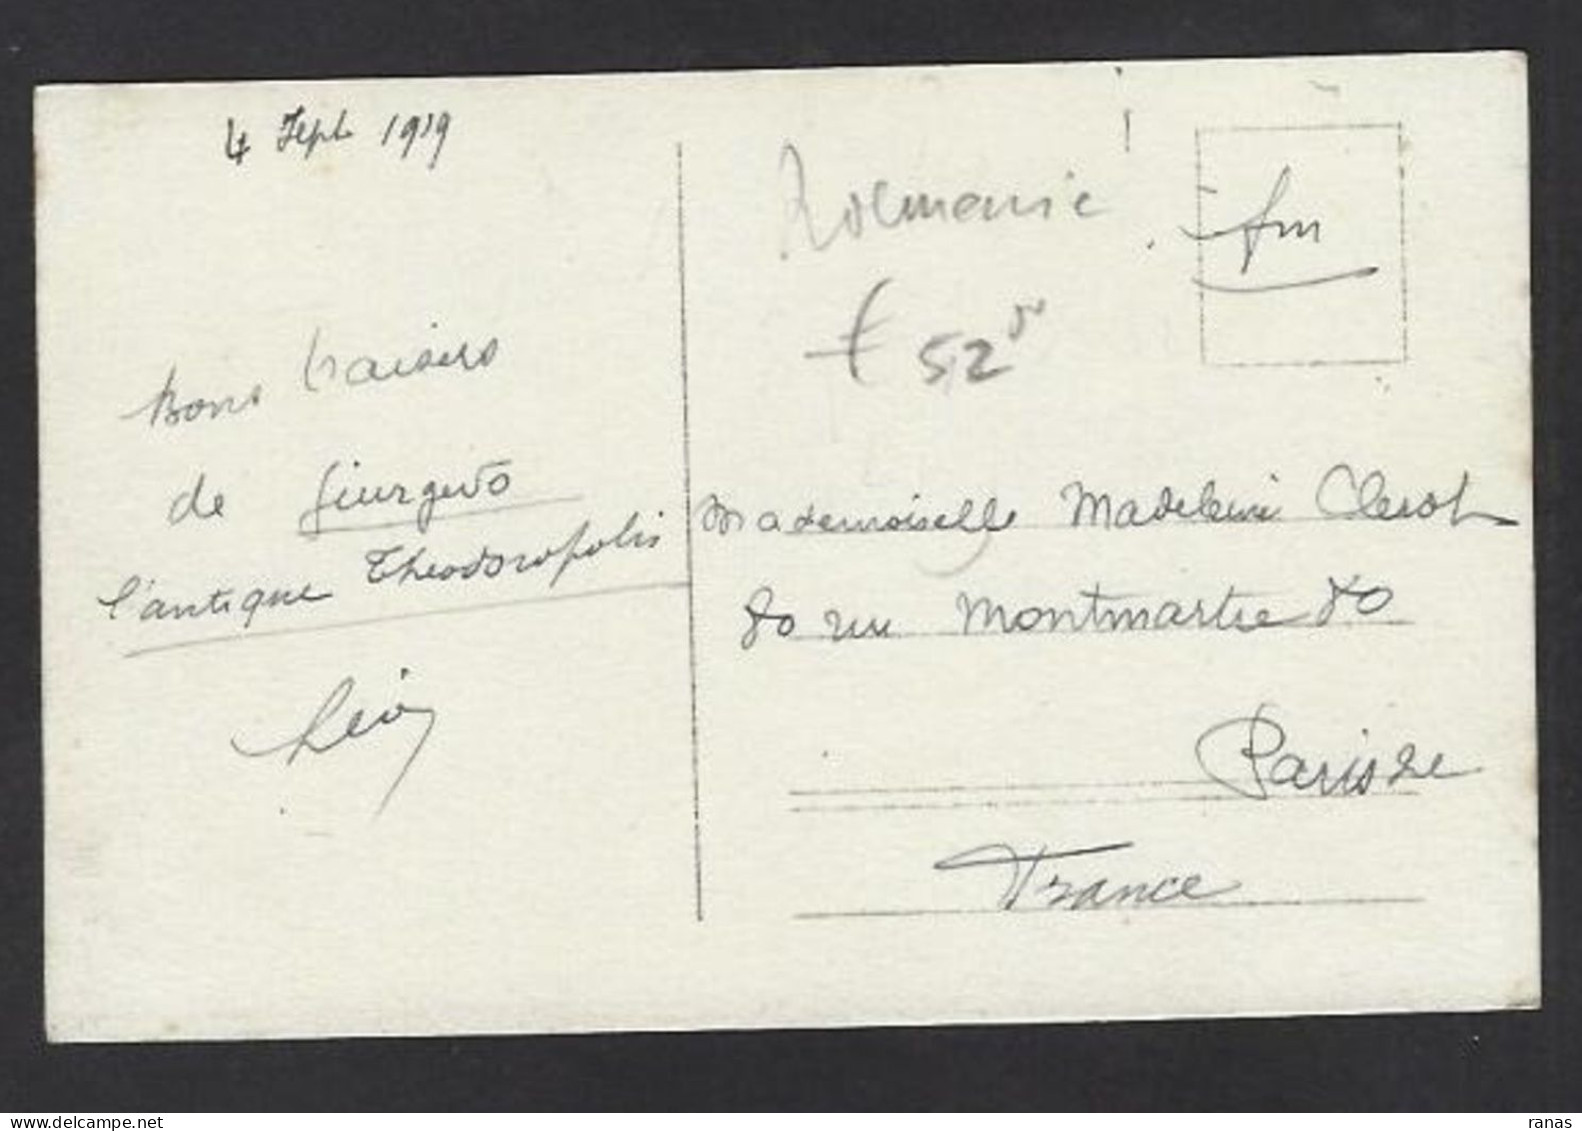 4 Sept 1919
Roumanie
fm
€ 52
Bons baisers
de Giurgevo
l'antique Theodoropolis
Mademoiselle Madeleine Clerot
80 rue Montmartre 80
Paris 2e
France
www.delcampe.net
ranas